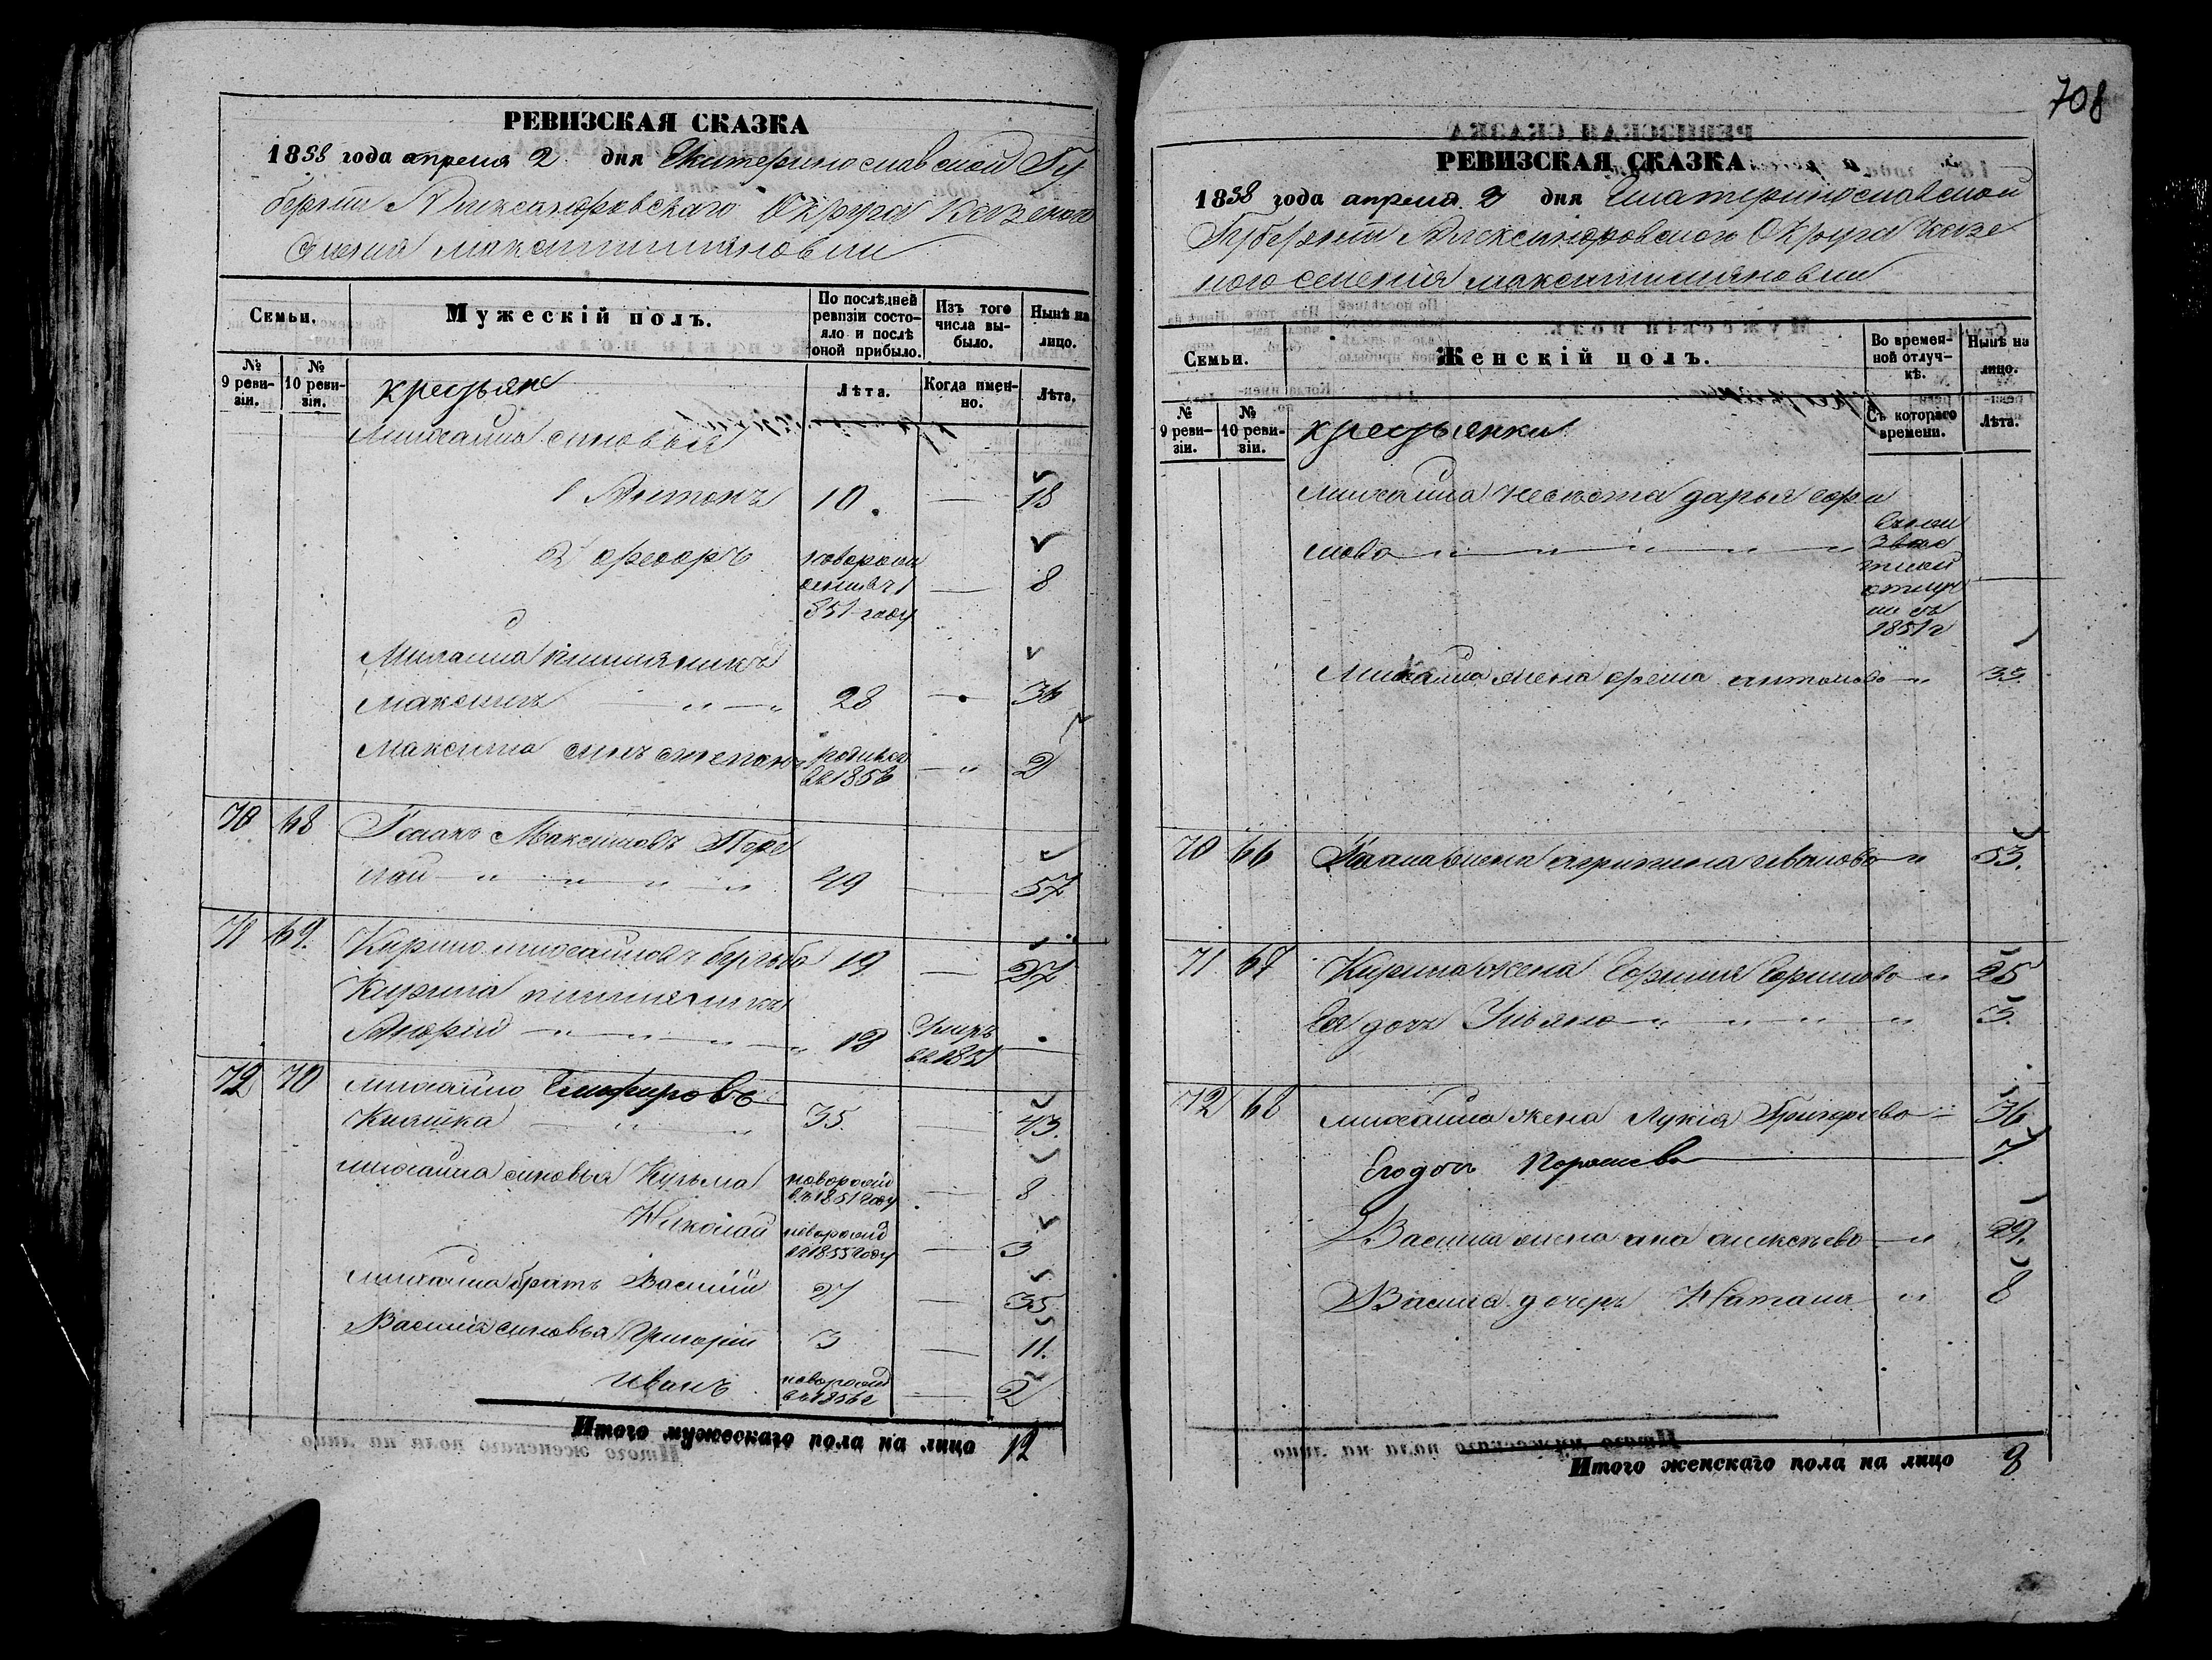 РЕВИЗСКАЯ СКАЗКА
1858 года апреля 2 дня Екатеринославской Гу
берніи Александровскаго Округа Казеного
Селенія Максимилияновки
Семьи.
Мужескій полъ.
По послѣдней ревизіи состояло и послѣ оной прибыло.
Изъ того числа выбыло.
Нынѣ на лицо.
№ 9 ревизіи.
№ 10 ревизіи.
крестьяне
Лѣта.
Когда именно.
Лѣта.
Михаила сыновья
1 Антонъ 10. — 18
2 Федоръ — 8
851 году
Михаила племянникъ
Максимъ — „ — „ 28 36
Максима сынъ Степанъ родился въ 1856 — „ 2
70 68 Романъ Максимовъ Пере
49 — 57
71 69. Кирило Михайловъ 19 — 27
Кирила племянникъ
Андрей — „ — „ — „ 18 Умеръ въ 1851
72 70 Михайло
Княшка 35. — 43.
Михаила сыновья Кузьма новорожд въ 1851 году — 8
Николай новорожд въ 1855 году — 3
Михаила братъ Василій 27 — 35
Василія сыновья Григорій 3 — 11.
Иванъ новорожд въ 1856 г — 2
Итого мужескаго пола на лицо 12
708
РЕВИЗСКАЯ СКАЗКА
1858 года апреля 2 дня Екатеринославской
Губерніи Александровскаго Округа Казе
ного селенія Максимилияновки
Семьи.
Женскій полъ.
Во временной отлучкѣ.
Нынѣ на лицо.
№ 9 ревизіи.
№ 10 ревизіи.
крестьянки
Съ котораго времени.
Лѣта.
Михаила невѣста дарья
отлуч
ки съ
1851 г
Михаила жена антонова „ 33.
70 66 Романа жена агрипина иванова „ 53.
71 67 Кирила жена „ 25
Ея дочь Ульяна „ „ „ „ 5.
72 68 Михаила жена Лукія Григорьева 36
Его дочь 7.
Василія жена ана алексѣева — „ 29.
Василія дочерь Наталія „ 8
Итого женскаго пола на лицо 8